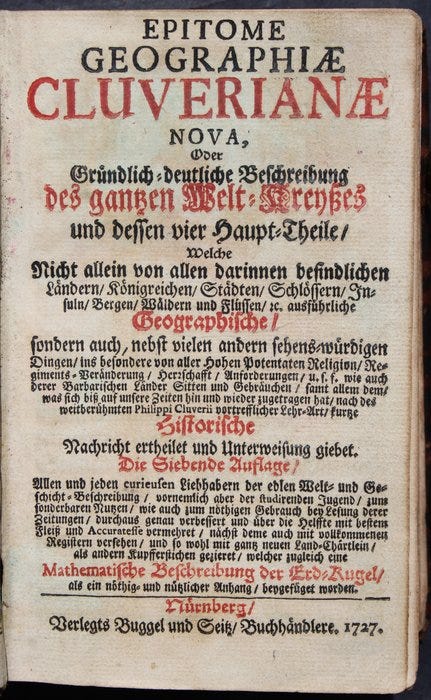 EPITOME
GEOGRAPHIÆ
CLUVERIANÆ
NOVA,
Oder
Gründlich-deutliche Beschreibung
des gantzen Welt-Kreyßes
und dessen vier Haupt-Theile/
Welche
Nicht allein von allen darinnen befindlichen
Ländern/ Königreichen/ Städten/ Schlössern/ In-
suln/ Bergen/ Wäldern und Flüssen/ ꝛc. ausführliche
Geographische/
sondern auch, nebst vielen andern sehens-würdigen
Dingen/ ins besondere von aller Hohen Potentaten Religion/ Re-
giments-Veränderung/ Herrschafft/ Anforderungen/ u. s. f. wie auch
derer Barbarischen Länder Sitten und Gebräuchen/ samt allem dem/
was sich biß auf unsere Zeiten hin und wieder zugetragen hat/ nach des
weitberühmten Philippi Cluverii vortrefflicher Lehr-Art/ kurtze
Historische
Nachricht ertheilet und Unterweisung giebet.
Die Siebende Auflage/
Allen und jeden curieusen Liebhabern der edlen Welt- und Ge-
schicht-Beschreibung/ vornemlich aber der studirenden Jugend/ zum
sonderbaren Nutzen/ wie auch zum nöthigen Gebrauch bey Lesung derer
Zeitungen/ durchaus genau verbessert und über die Helffte mit bestem
Fleiß und Accuratesse vermehret/ nächst deme auch mit vollkommenen
Registern versehen/ und so wohl mit gantz neuen Land-Chärtlein/
als andern Kupfferstichen gezieret/ welcher zugleich eine
Mathematische Beschreibung der Erd-Kugel/
als ein nöthig- und nützlicher Anhang/ beygefüget worden.
Nürnberg/
Verlegts Buggel und Seitz/ Buchhändlere. 1727.